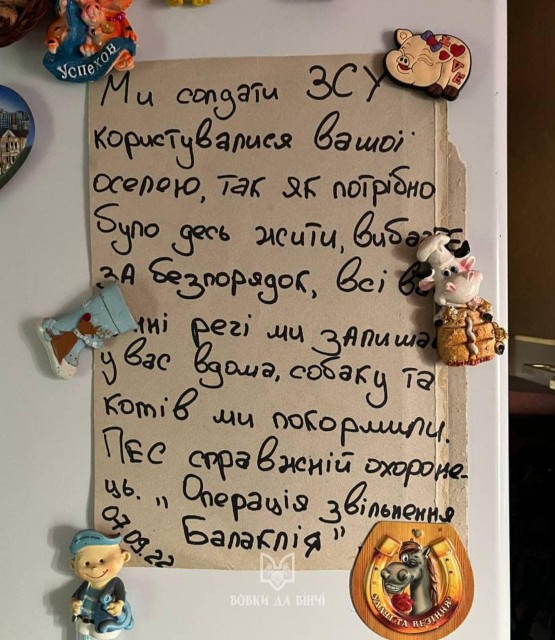 Успехов
LOVE
Ми солдати ЗСУ
користувалися вашої
оселею, так як потрібно
було десь жити, вибачте
за безпорядок, всі
речі ми
у вас вдома, собаку та
котів ми покормили.
ПЕС справжній охороне-
ць. „Операція звільнення
07.09.22 Балаклія"
ВОВКИ ДА ВІНЧІ
ТА ВЕЗІННЯ